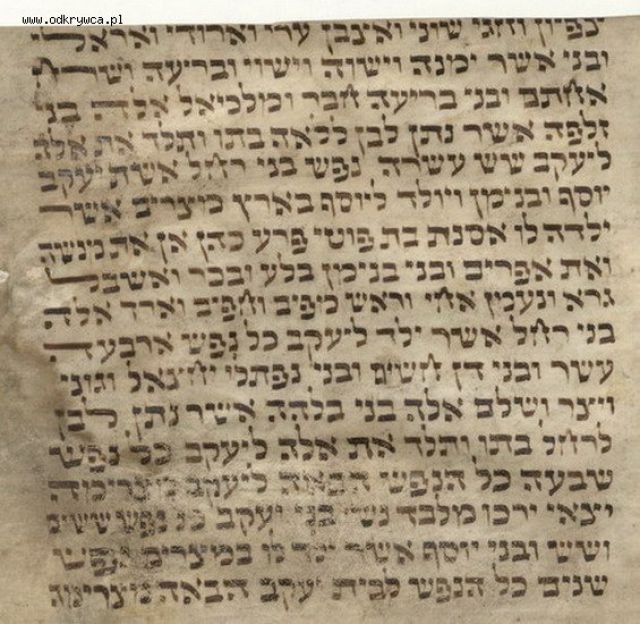 www.odkrywca.pl
צפיון וחגי שוני ואצבן ערי וארודי ואראלי
ובני אשר ימנה וישוה וישוי ובריעה ושרח
אחתם ובני בריעה חבר ומלכיאל אלה בני
זלפה אשר נתן לבן ללאה בתו ותלד את אלה
ליעקב שש עשרה נפש בני רחל אשת יעקב
יוסף ובנימן ויולד ליוסף בארץ מצרים אשר
ילדה לו אסנת בת פוטי פרע כהן אן את מנשה
ואת אפרים ובני בנימין בלע ובכר ואשבל
גרא ונעמן אחי וראש מפים וחפים וארד אלה
בני רחל אשר ילד ליעקב כל נפש ארבעה
עשר ובני דן חשים ובני נפתלי יחצאל וגוני
ויצר ושלם אלה בני בלהה אשר נתן לבן
לרחל בתו ותלד את אלה ליעקב כל נפש
שבעה כל הנפש הבאה ליעקב מצרימה
יצאי ירכו מלבד נשי בני יעקב כל נפש ששים
ושש ובני יוסף אשר ילד לו במצרים נפש
שנים כל הנפש לבית יעקב הבאה מצרימה